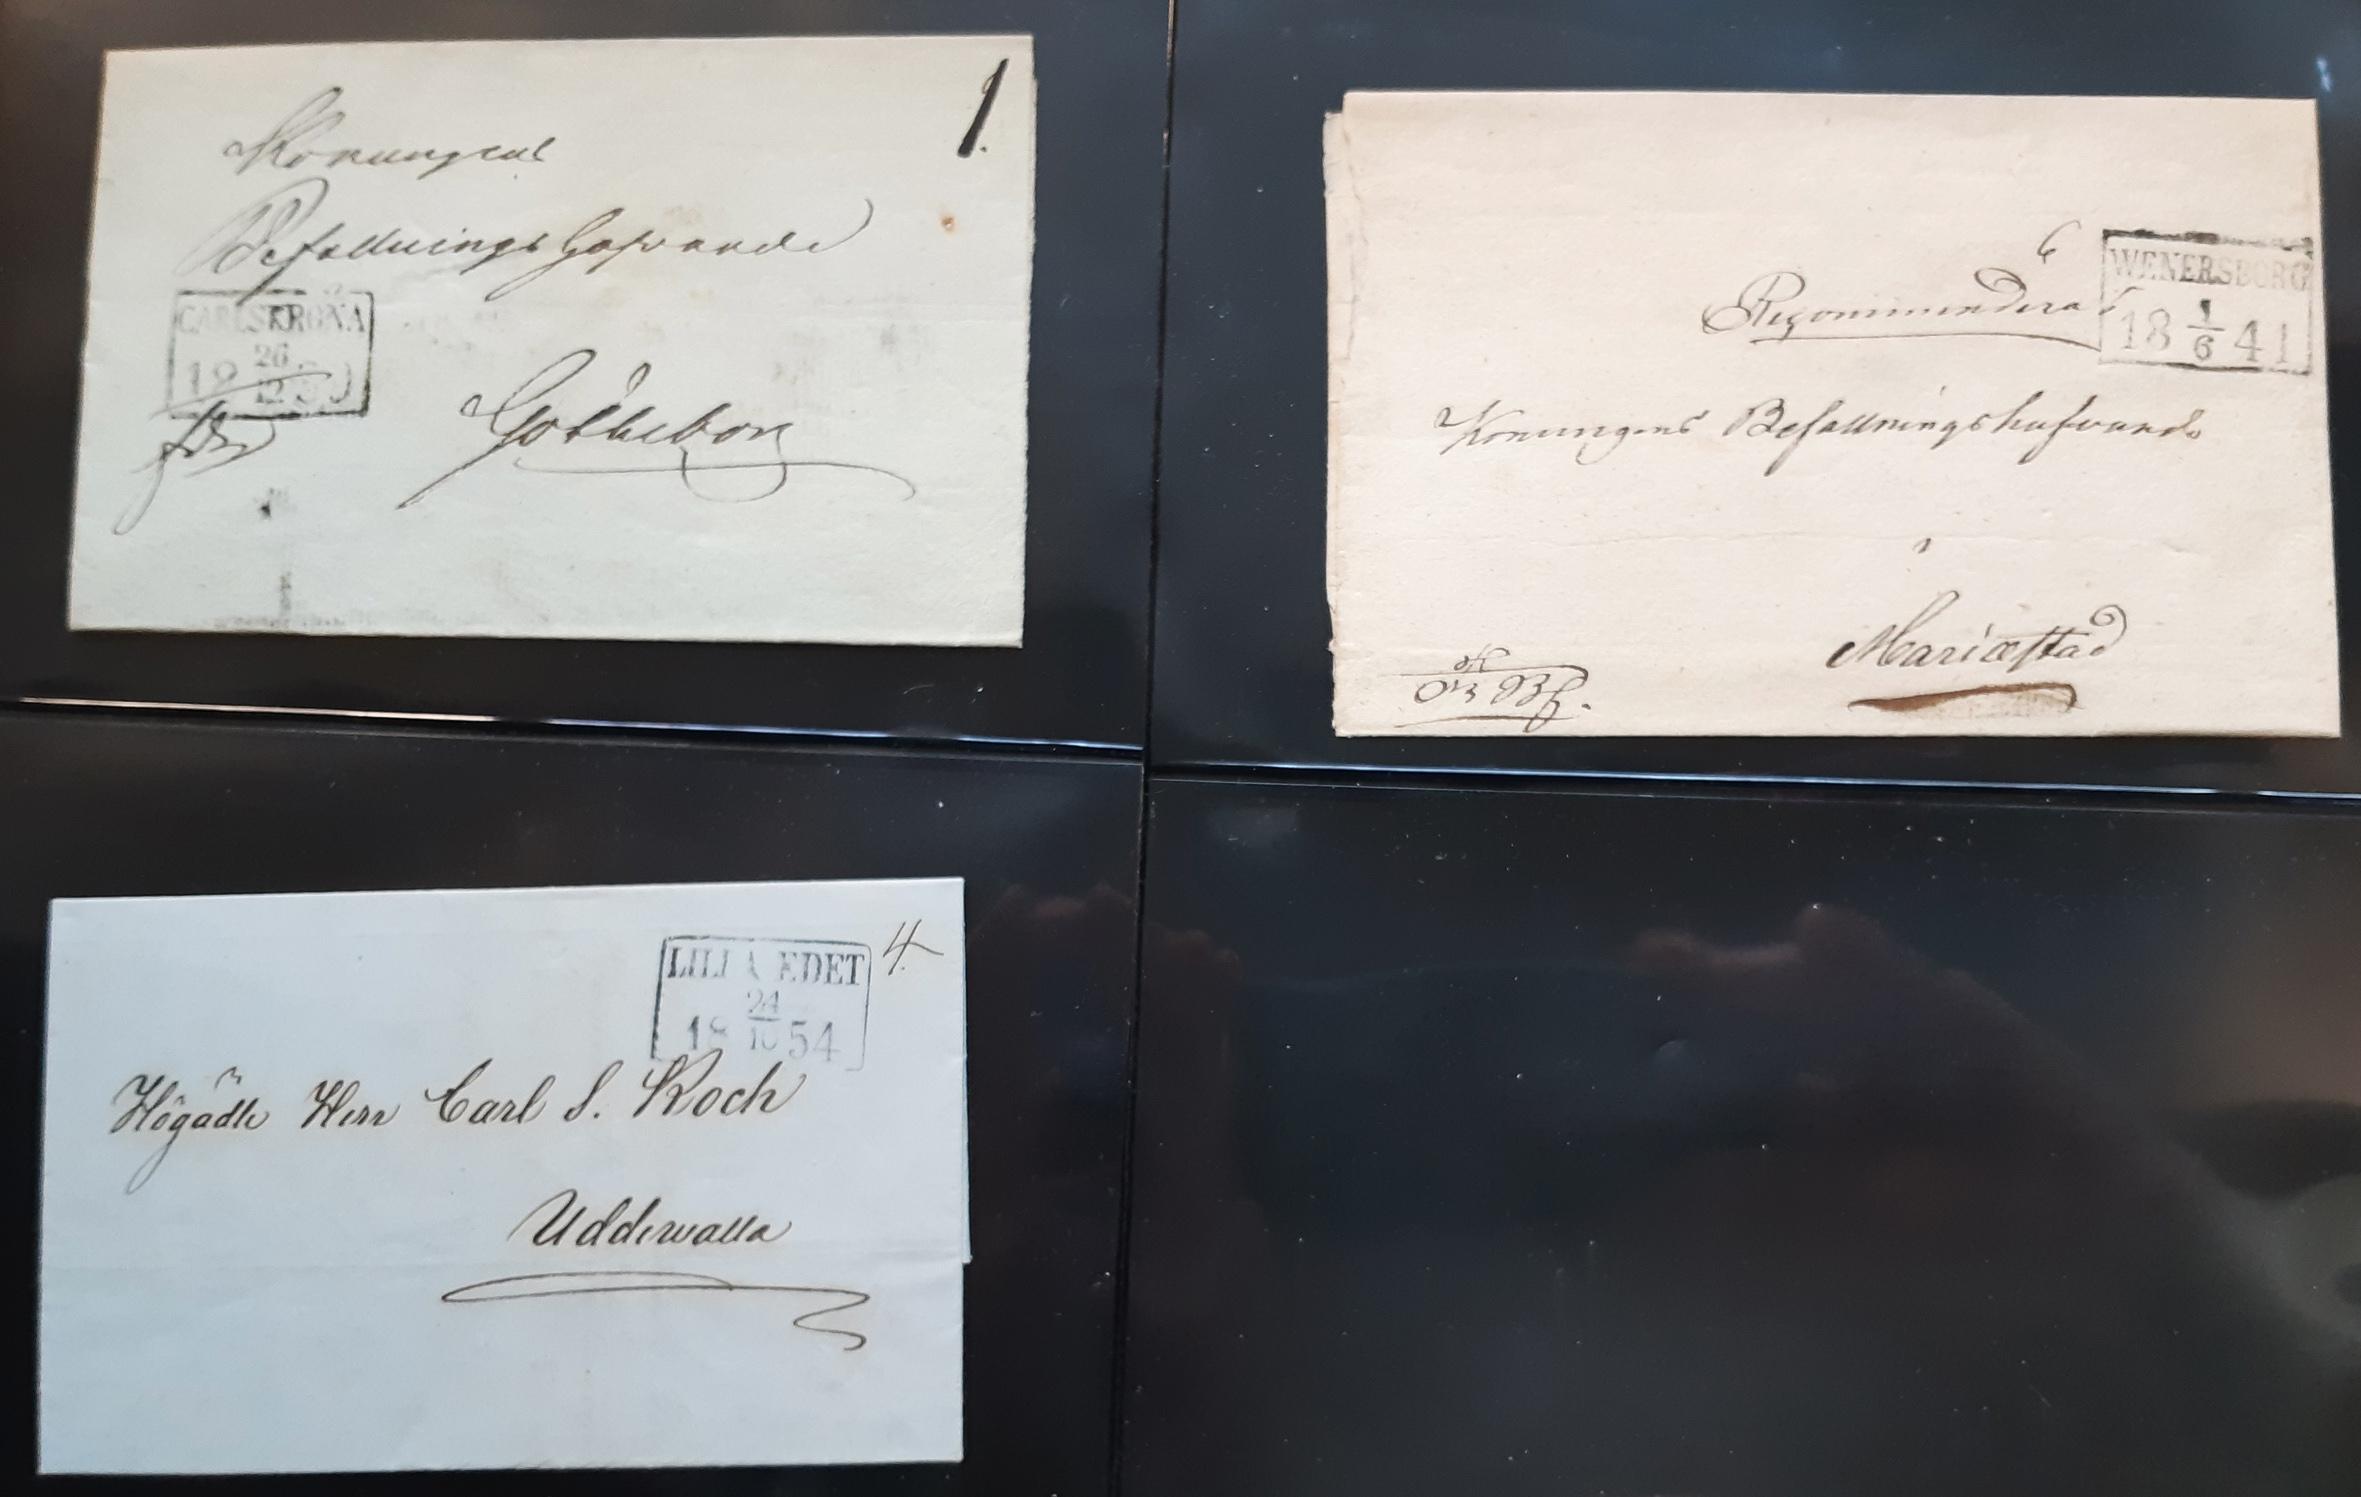 1.
Konungens
Befallningshafvande
CARLSKRONA
26
12
Götheborg
6
WENERSBORG
Recommenderas
18 1/6 41
Konungens Befallningshafvande
i
Mariæstad
LILLA EDET
4.
18 24/10 54
Högädle Herr Carl S. Koch
Uddewalla